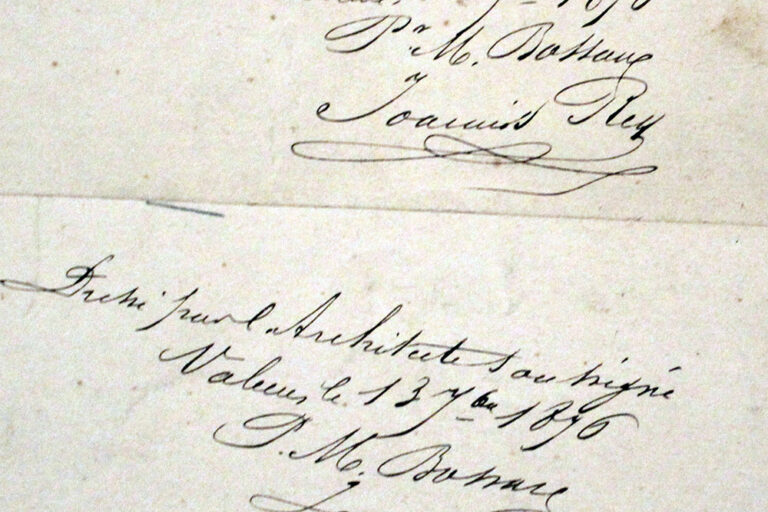 1876
Pr M. Bossan
Joannis Rey
Dressé par l'Architecte soussigné
Valence le 13 7bre 1876
P. M. Bossan